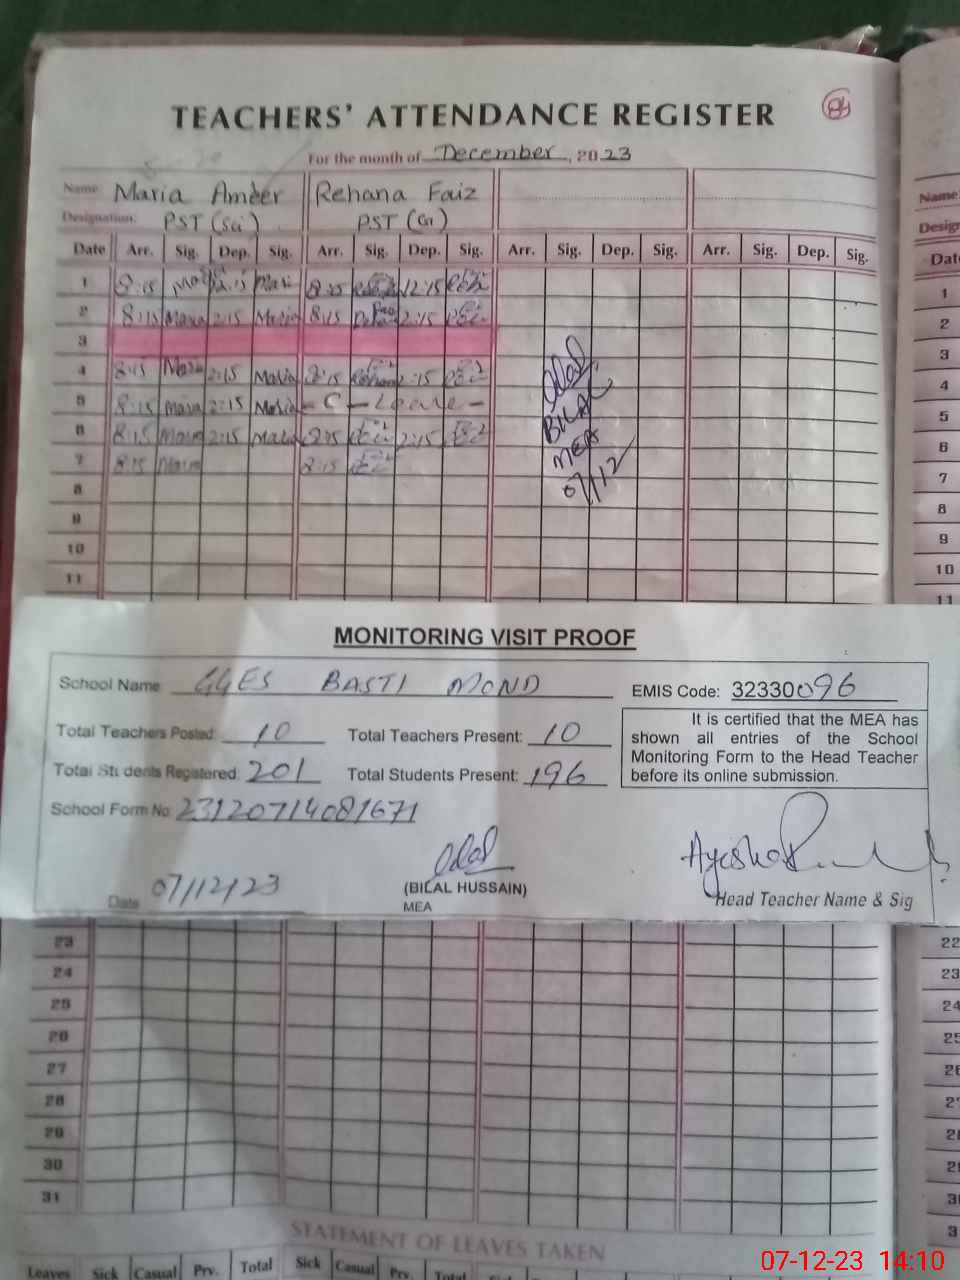 TEACHERS' ATTENDANCE REGISTER
84
For the month of December, 2023
Name Maria Ameer Rehana Faiz
Designation: PST (Sci) PST
Date Arr. Sig. Dep. Sig. Arr. Sig. Dep. Sig. Arr. Sig. Dep. Sig. Arr. Sig. Dep. Sig.
1 8:15 8:15 12:15
2 8:15 Maria 2:15 Maria 8:15 2:15
3
4 8:15 Maria 2:15 Maria 8:15 2:15
5 8:15 Maria 2:15 Maria - C - Leave -
6 8:15 Maria 2:15 Maria 8:15 2:15
7 8:15 Maria 8:15
BILAL
MEA
07/12
8
9
10
11
MONITORING VISIT PROOF
School Name GGES BASTI MOND
EMIS Code: 32330096
Total Teachers Posted: 10 Total Teachers Present: 10
Total Students Registered: 201 Total Students Present: 196
It is certified that the MEA has
shown all entries of the School
Monitoring Form to the Head Teacher
before its online submission.
School Form No: 23120714081671
Date 07/12/23
(BILAL HUSSAIN)
MEA
Ayesha
Head Teacher Name & Sig
23
24
25
26
27
28
29
30
31
STATEMENT OF LEAVES TAKEN
Leaves Sick Casual Prv. Total Sick Casual Prv. Total
Name:
Date
1
2
3
4
5
6
7
8
9
10
11
22
23
07-12-23 14:10